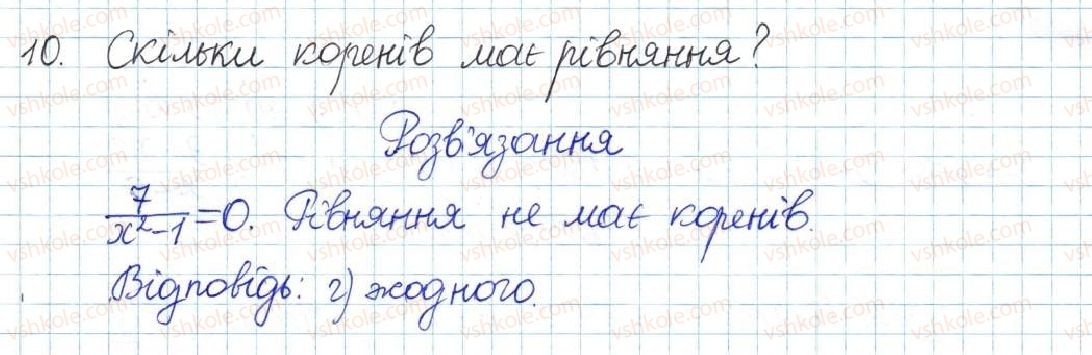 10. Скільки коренів має рівняння?
Розв'язання
7/(x²-1)=0. Рівняння не має коренів.
Відповідь: г) жодного.